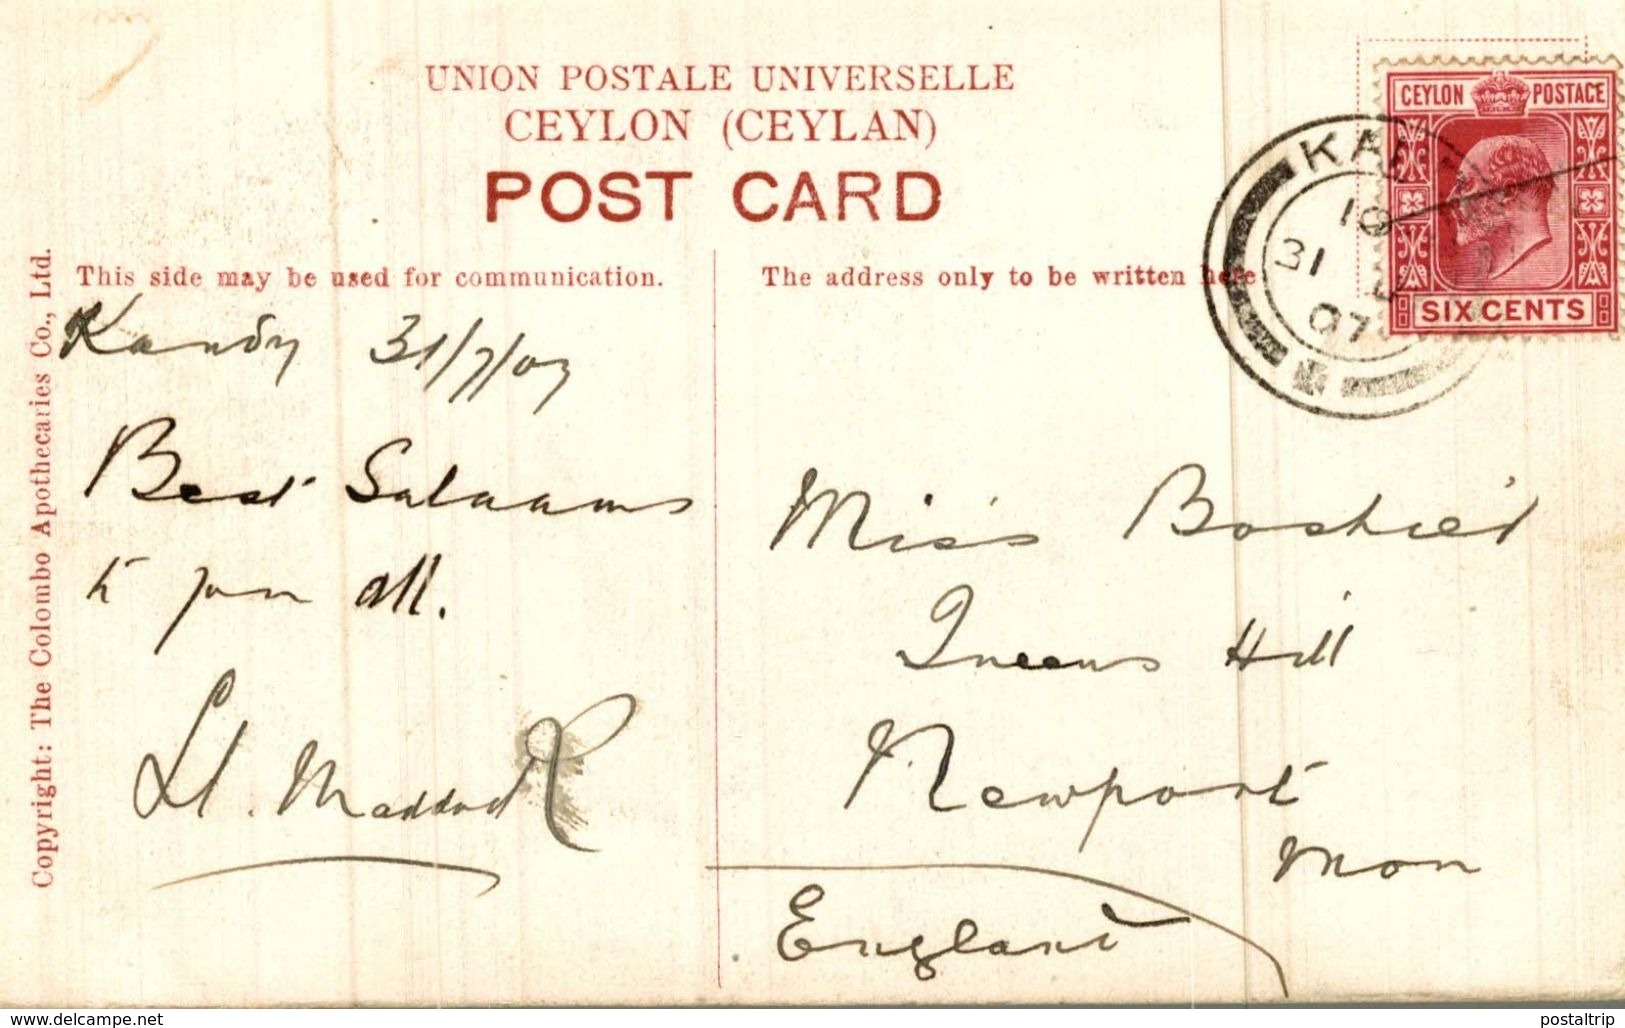 UNION POSTALE UNIVERSELLE
CEYLON (CEYLAN)
POST CARD
CEYLON POSTAGE
SIX CENTS
10
31
07
This side may be used for communication.
The address only to be written here
Kandy 31/7/07
Best Salaams
to you all.
Miss
Queens Hill
Newport
Mon
England
Copyright: The Colombo Apothecaries Co., Ltd.
www.delcampe.net
postaltrip